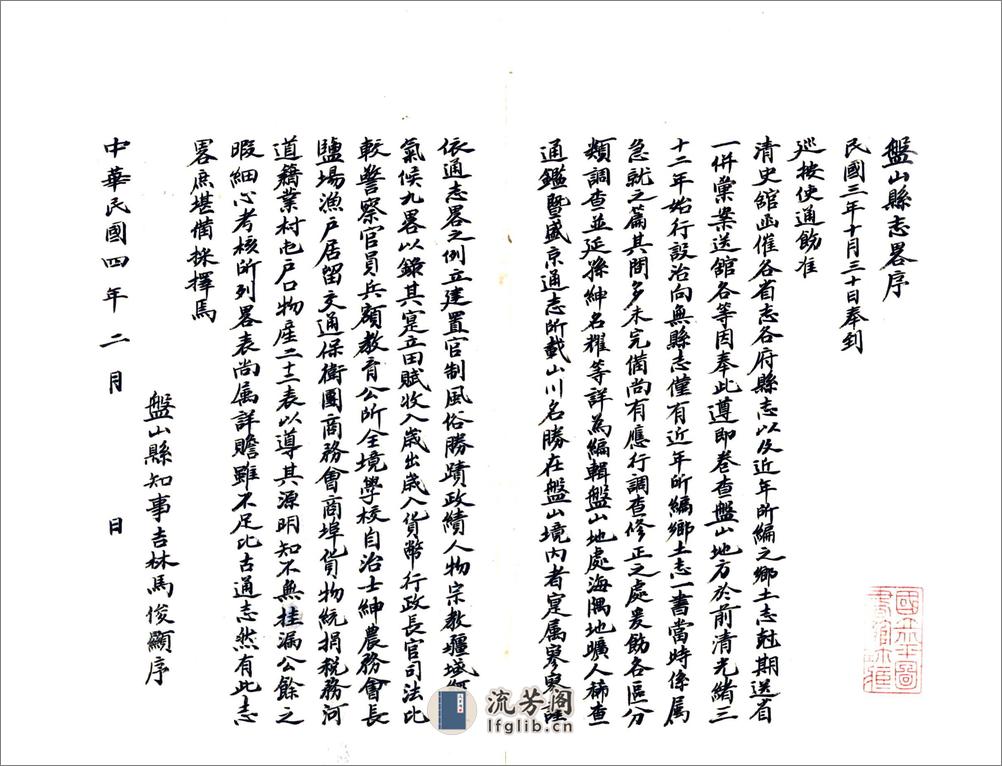 盤山縣志畧序
民國三年十月三十日奉到
巡按使通飭准
清史館函催各省志各府縣志以及近年所編之鄉土志尅期送省
一併彙案送館各等因奉此遵即卷查盤山地方於前清光緒三
十二年始行設治向無縣志僅有近年所編鄉土志一書當時係属
急就之篇其間多未完備尚有應行調查修正之處爰飭各區分
類調查並延孫紳名耀等詳為編輯盤山地處海隅地曠人稀查
通鑑暨盛京通志所載山川名勝在盤山境內者寔属寥寥
依通志畧之例立建置官制風俗勝蹟政績人物宗教疆域
氣候九畧以錄其寔立田賦收入歲出歲入貨幣行政長官司法比
較警察官員兵額教育公所全境學校自治士紳農務會長
鹽場漁戶居留交通保衛團商務會商埠貨物統捐稅務河
道籍業村屯戶口物產二十三表以導其源明知不無挂漏公餘之
暇細心考核所列畧表尚属詳贍雖不足比古通志然有此志
畧庶堪備採擇焉
盤山縣知事吉林馬俊顯序
中華民國四年二月 日
國立北平圖
書館收藏
流芳阁
lfglib.cn